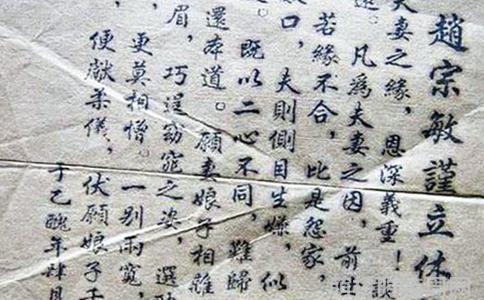 趙宗敏謹立休
夫妻之緣,恩深義重!
遠。凡為夫妻之因,前
若緣不合,比是怨家,
口,夫則側目生嫌,似
既以二心不同,難歸
還本道。願妻娘子相離
眉,巧逞窈窕之姿,選
更莫相憎。一別兩寬,
便獻柔儀,伏願娘子千
于乙醜年肆月